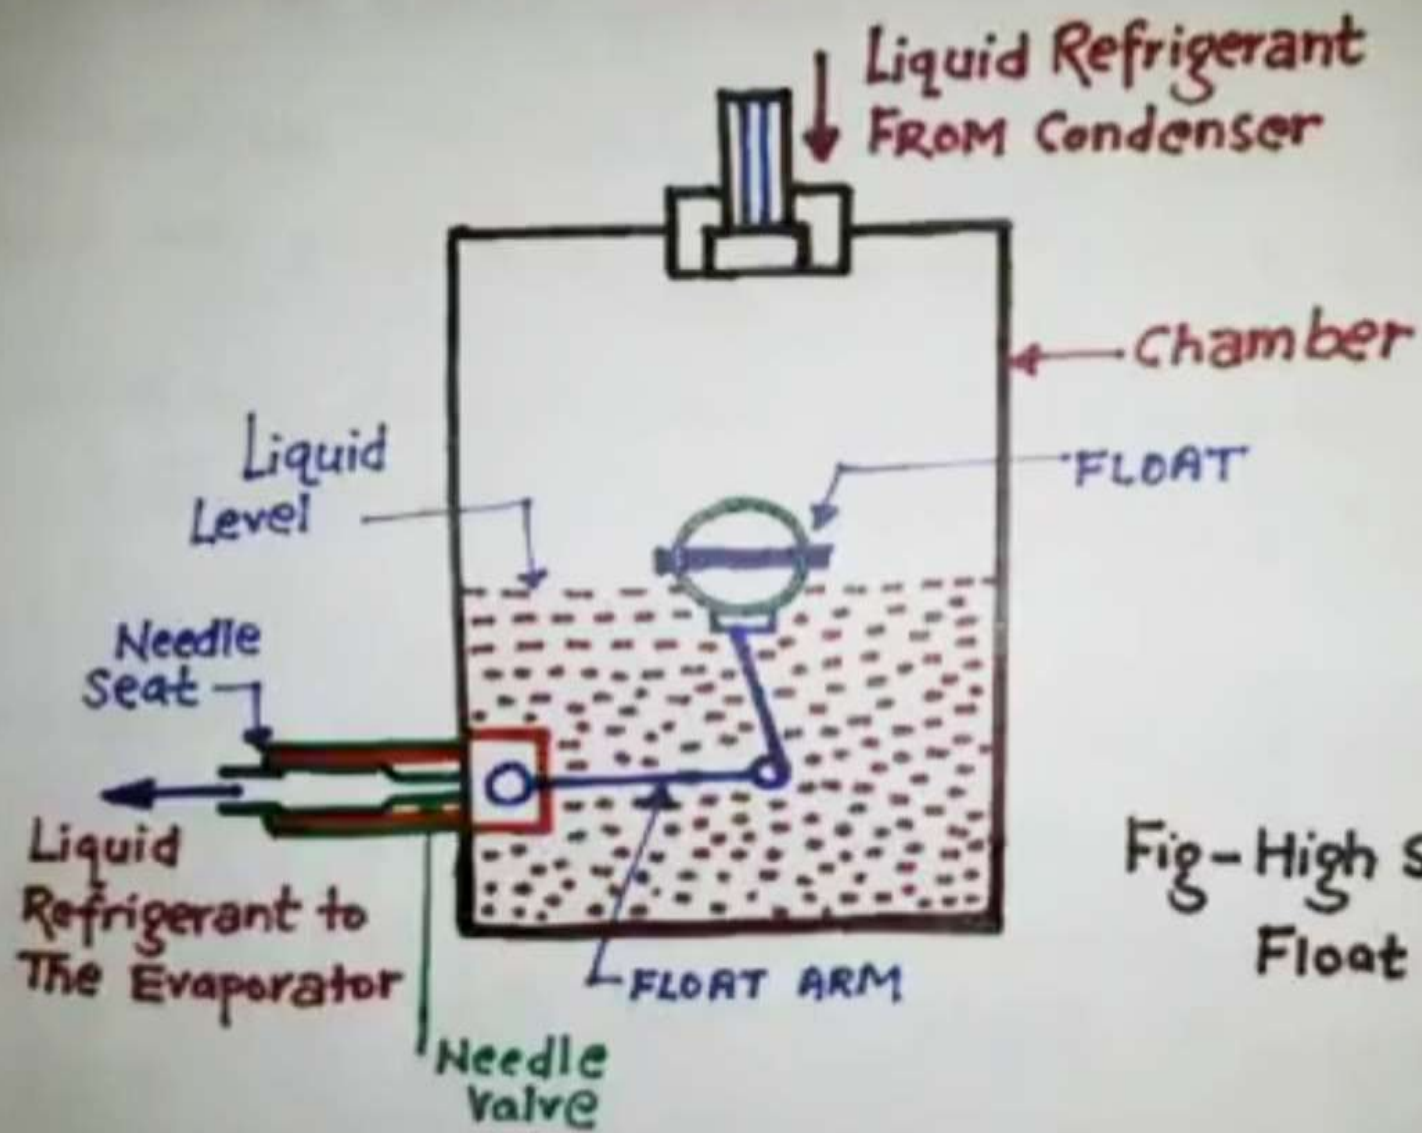 Liquid Refrigerant
FROM Condenser
Chamber
FLOAT
Liquid
Level
Needle
Seat
Liquid
Refrigerant to
The Evaporator
FLOAT ARM
Needle
Valve
Fig-High
Float